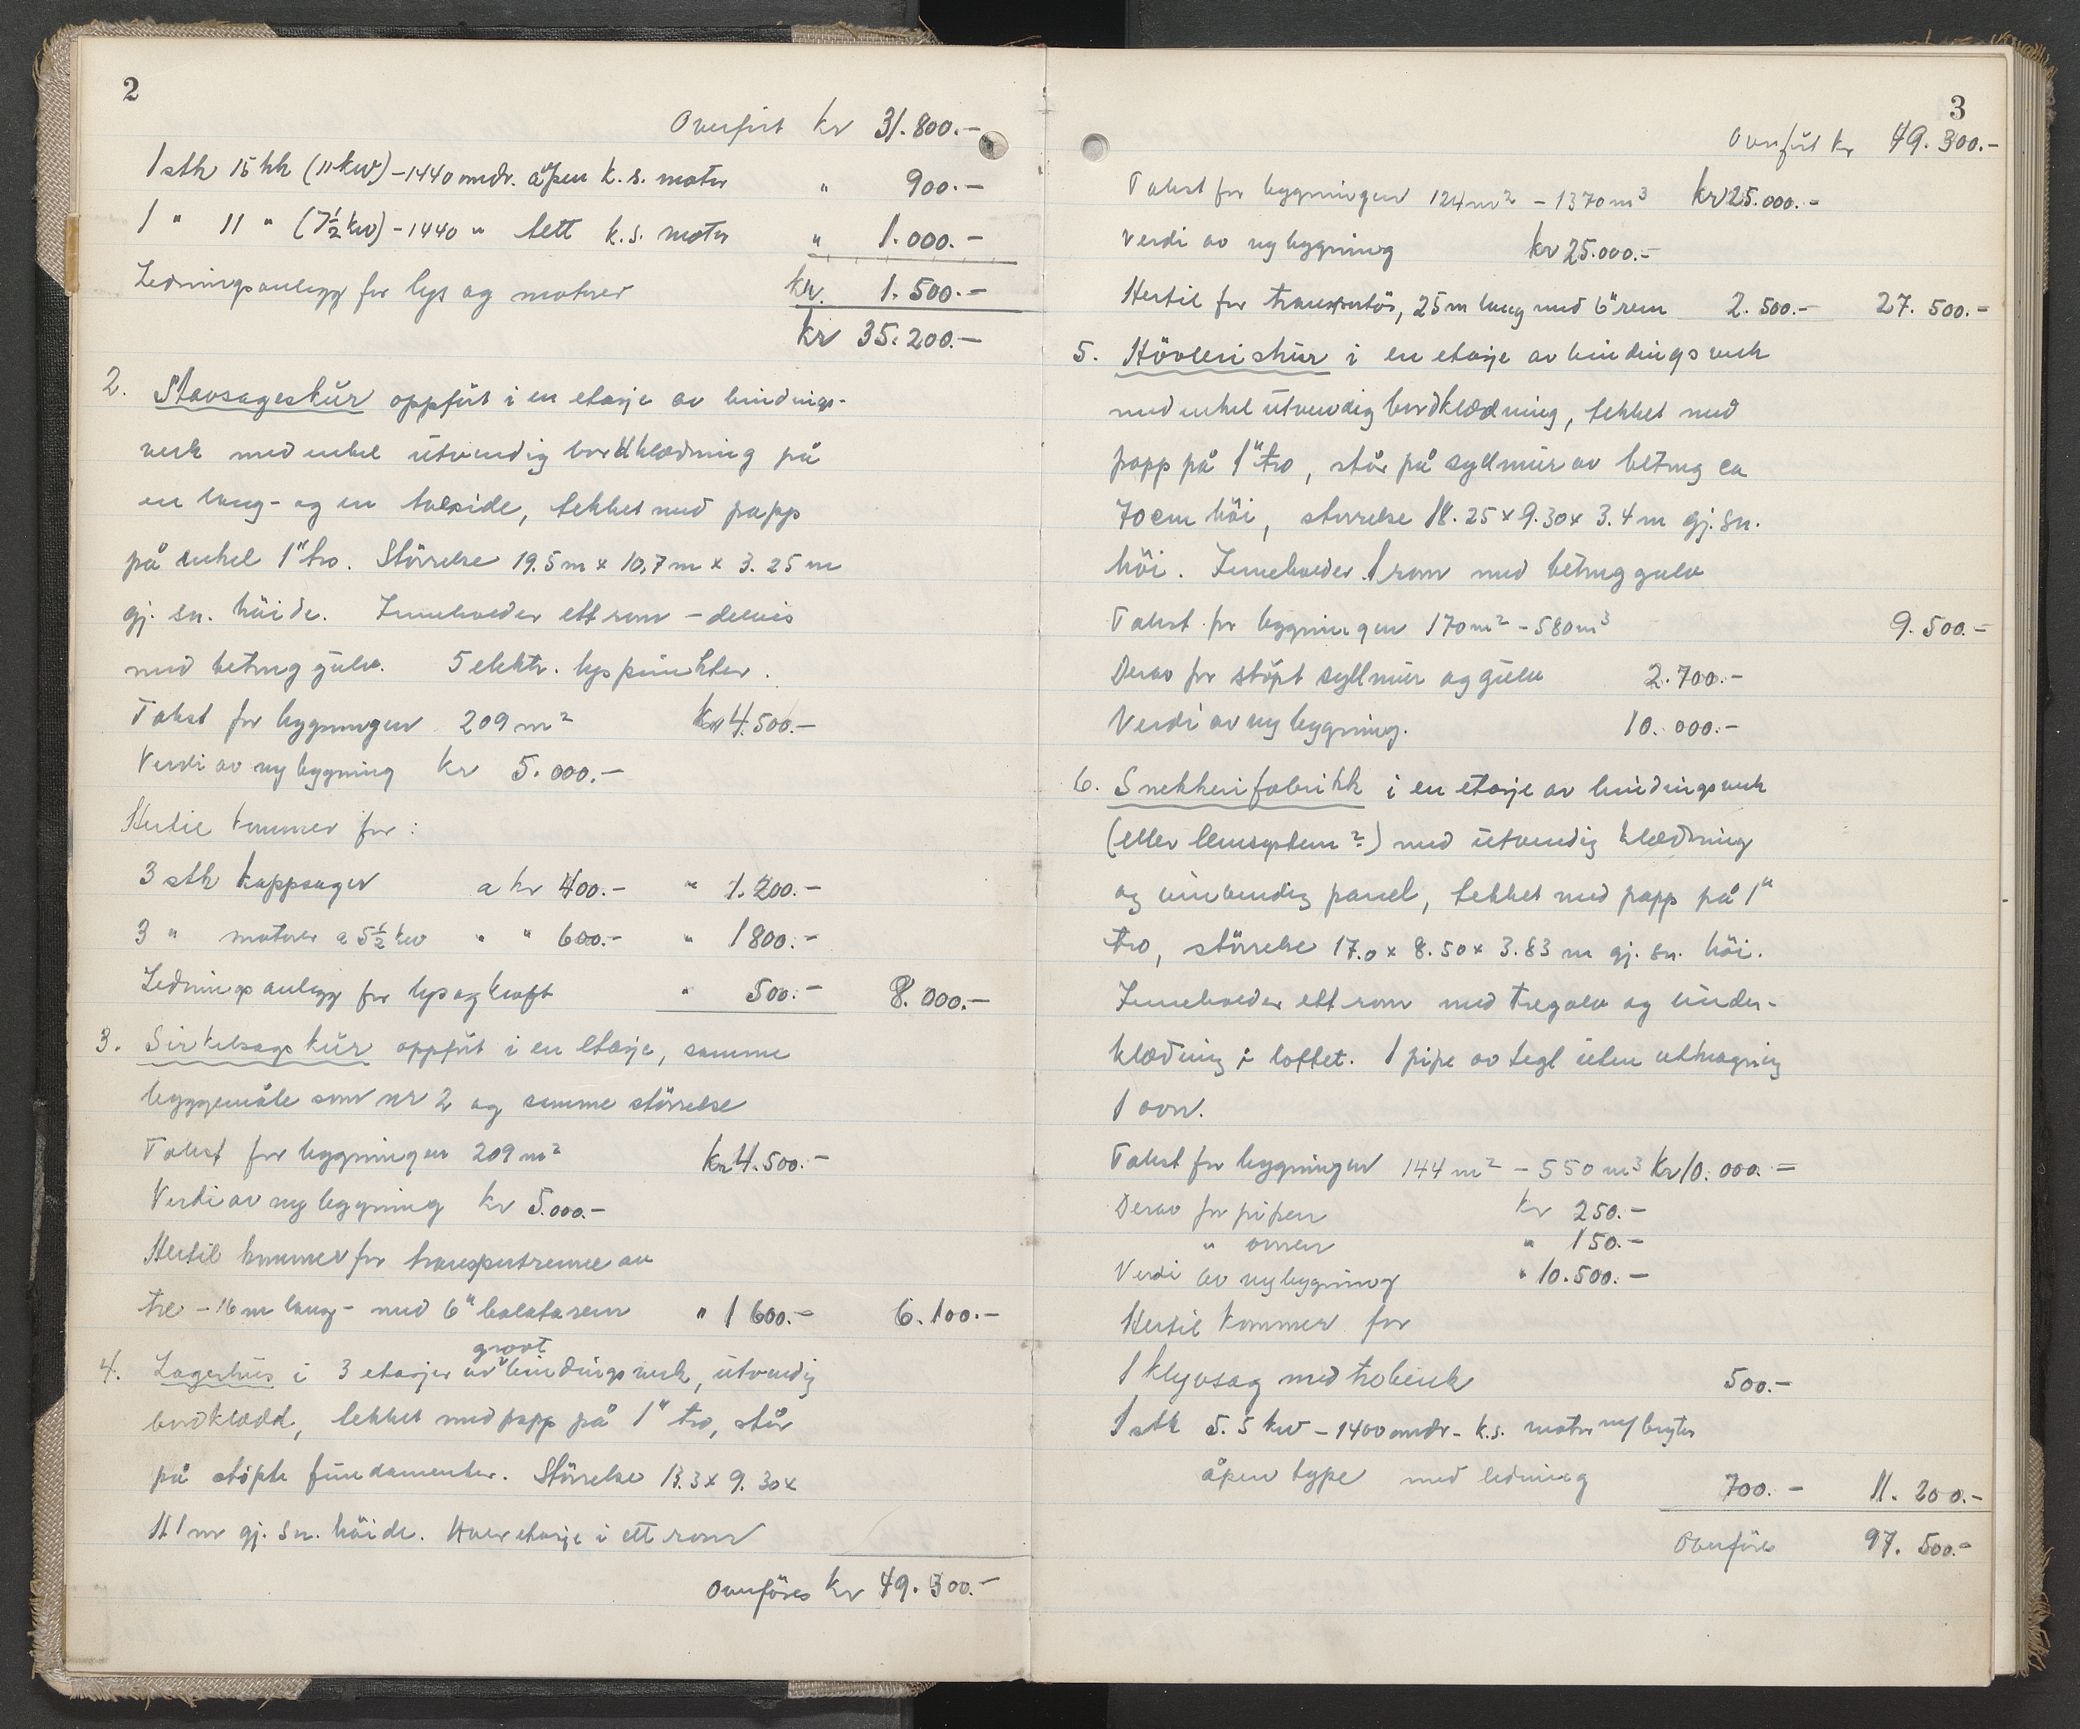 2
Overfört kr 31.800.-
1 stk 15 hk (11 kw) - 1440 omdr. åpen k.s. motor " 900.-
1 " 11 " (7½ kw) - 1440 " tett k.s. motor " 1.000.-
Ledningsanlegg for lys og motorer kr. 1.500.-
kr 35.200.-
2. Stavsagskur oppfört i en etasje av bindings-
verk med enkel utvendig bordklædning på
en lang- og en halvside, tekket med papp
på enkel 1" tro. Störrelse 19.5 m x 10,7 m x 3.25 m
gj. sn. höide. Inneholder ett rom - delvis
med betong gulv. 5 elektr. lyspunkter.
Takst for bygningen 209 m² kr 4.500.-
Verdi av ny bygning kr 5.000.-
Hertil kommer for:
3 stk kappsager a kr 400.- " 1.200.-
3 " motorer a 5½ kw " " 600.- " 1800.-
Ledningsanlegg for lys og kraft " 500.- 8.000.-
3. Sirkelsagskur oppfört i en etasje, samme
byggemåte som nr 2 og samme störrelse
Takst for bygningen 209 m² kr 4.500.-
Verdi av ny bygning kr 5.000.-
Hertil kommer for transportrenne av
tre - 16 m lang - med 6" balatarem " 1600.- 6.100.-
4. Lagerhus i 3 etasjer av grovt bindingsverk, utvendig
bordklædd, tekket med papp på 1" tro, står
på stöpte fundamenter. Störrelse 13.3 x 9.30 x
11.1 m gj. sn. höide. Hver etasje i ett rom
Overföres kr 49.300.-
3
Overfört kr 49.300.-
Takst for bygningen 124 m² - 1370 m³ kr 25.000.-
Verdi av ny bygning kr 25.000.-
Hertil for transportör, 25 m lang med 6" rem 2.500.- 27.500.-
5. Hövleriskur i en etasje av bindingsverk
med enkel utvendig bordklædning, tekket med
papp på 1" tro, står på syllmur av betong ca
70 cm höi, störrelse 18.25 x 9.30 x 3.4 m gj. sn.
höi. Inneholder 1 rom med betonggulv
Takst for bygningen 170 m² - 580 m³ 9.500.-
Derav for stöpt syllmur og gulv 2.700.-
Verdi av ny bygning. 10.000.-
6. Snekkerifabrikk i en etasje av bindingsverk
(eller lemsystem?) med utvendig klædning
og innvendig panel, tekket med papp på 1"
tro, störrelse 17.0 x 8.50 x 3.83 m gj. sn. höi.
Inneholder ett rom med tregolv og under-
klædning i loftet. 1 pipe av tegl uten utkragning
1 ovn.
Takst for bygningen 144 m² - 550 m³ kr 10.000.-
Derav for pipen kr 250.-
" ovnen " 150.-
Verdi av ny bygning " 10.500.-
Hertil kommer for
1 klyvsag med trebenk 500.-
1 stk 5.5 kw - 1400 omdr - k.s. motor m/ bryter
åpen type med ledning 700.- 11.200.-
Overföres 97.500.-